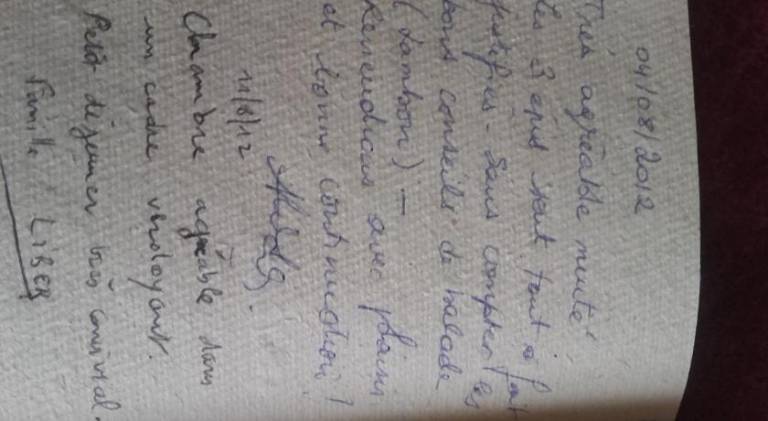 04/08/2012
Très agréable nuité,
Les 3 épis sont tout à fait
justifiés - Sans compter les
bons conseils de balade
(Lambon) -
Reviendrons avec plaisir
et bonne continuation !
11/8/12
Chambre agréable dans
un cadre verdoyant.
Petit déjeuner très convivial.
Famille LIBER